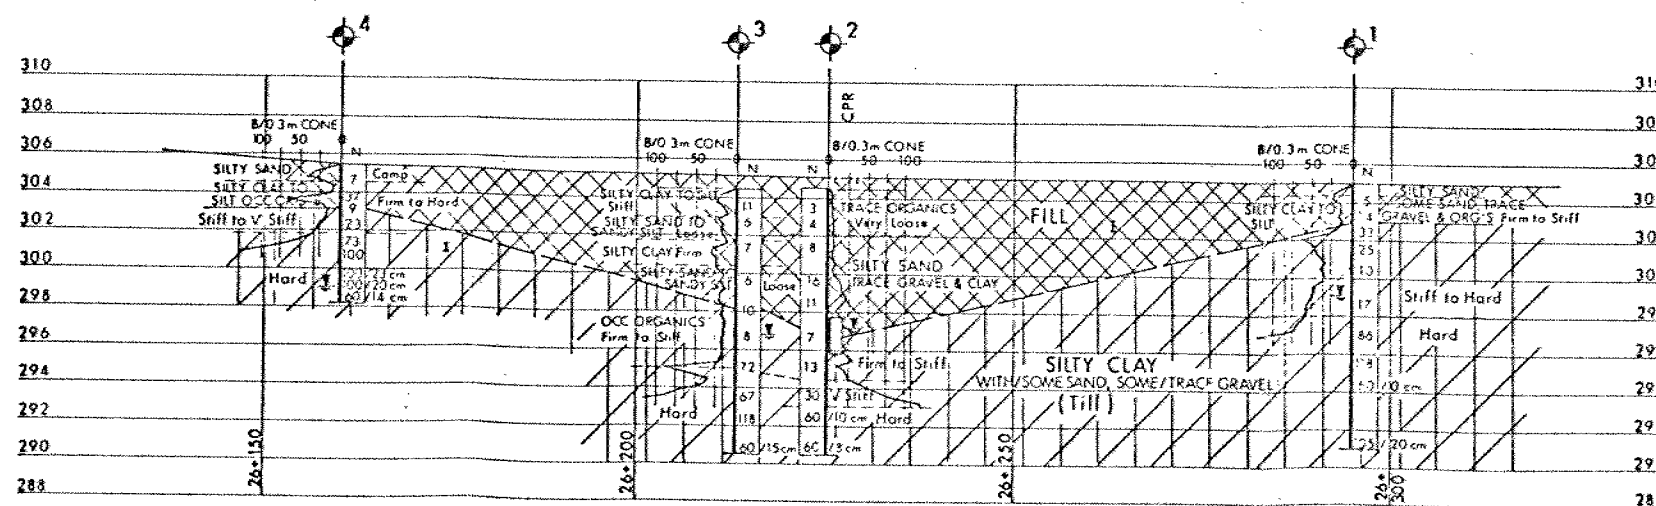 4
3
2
1
310
308
306
304
302
300
298
296
294
292
290
288
CPR
B/0.3m CONE
100 50
N
SILTY SAND
SILTY CLAY TO
SILT OCC ORG
Stiff to V Stiff
Hard
7
9
23
73
100
100/20 cm
60/14 cm
Comp
Firm to Hard
B/0.3m CONE
100 50
N
SILTY CLAY TO SILT
Stiff
SILTY SAND TO
SANDY SILT Loose
SILTY CLAY Firm
SILTY SAND
Loose
OCC ORGANICS
Firm to Stiff
Hard
11
6
7
6
10
8
72
67
118
60/15cm
B/0.3m CONE
50 100
N
3
4
8
16
11
7
13
30
60/10 cm
60/3cm
TRACE ORGANICS
Very Loose
SILTY SAND
TRACE GRAVEL & CLAY
Firm to Stiff
V Stiff
Hard
FILL
SILTY CLAY
WITH/SOME SAND, SOME/TRACE GRAVEL
(Till)
B/0.3m CONE
100 50
N
SILTY CLAY TO
SILT
SILTY SAND
SOME SAND TRACE
GRAVEL & ORG'S Firm to Stiff
4
25
17
86
Stiff to Hard
Hard
26+150
26+200
26+250
26+300